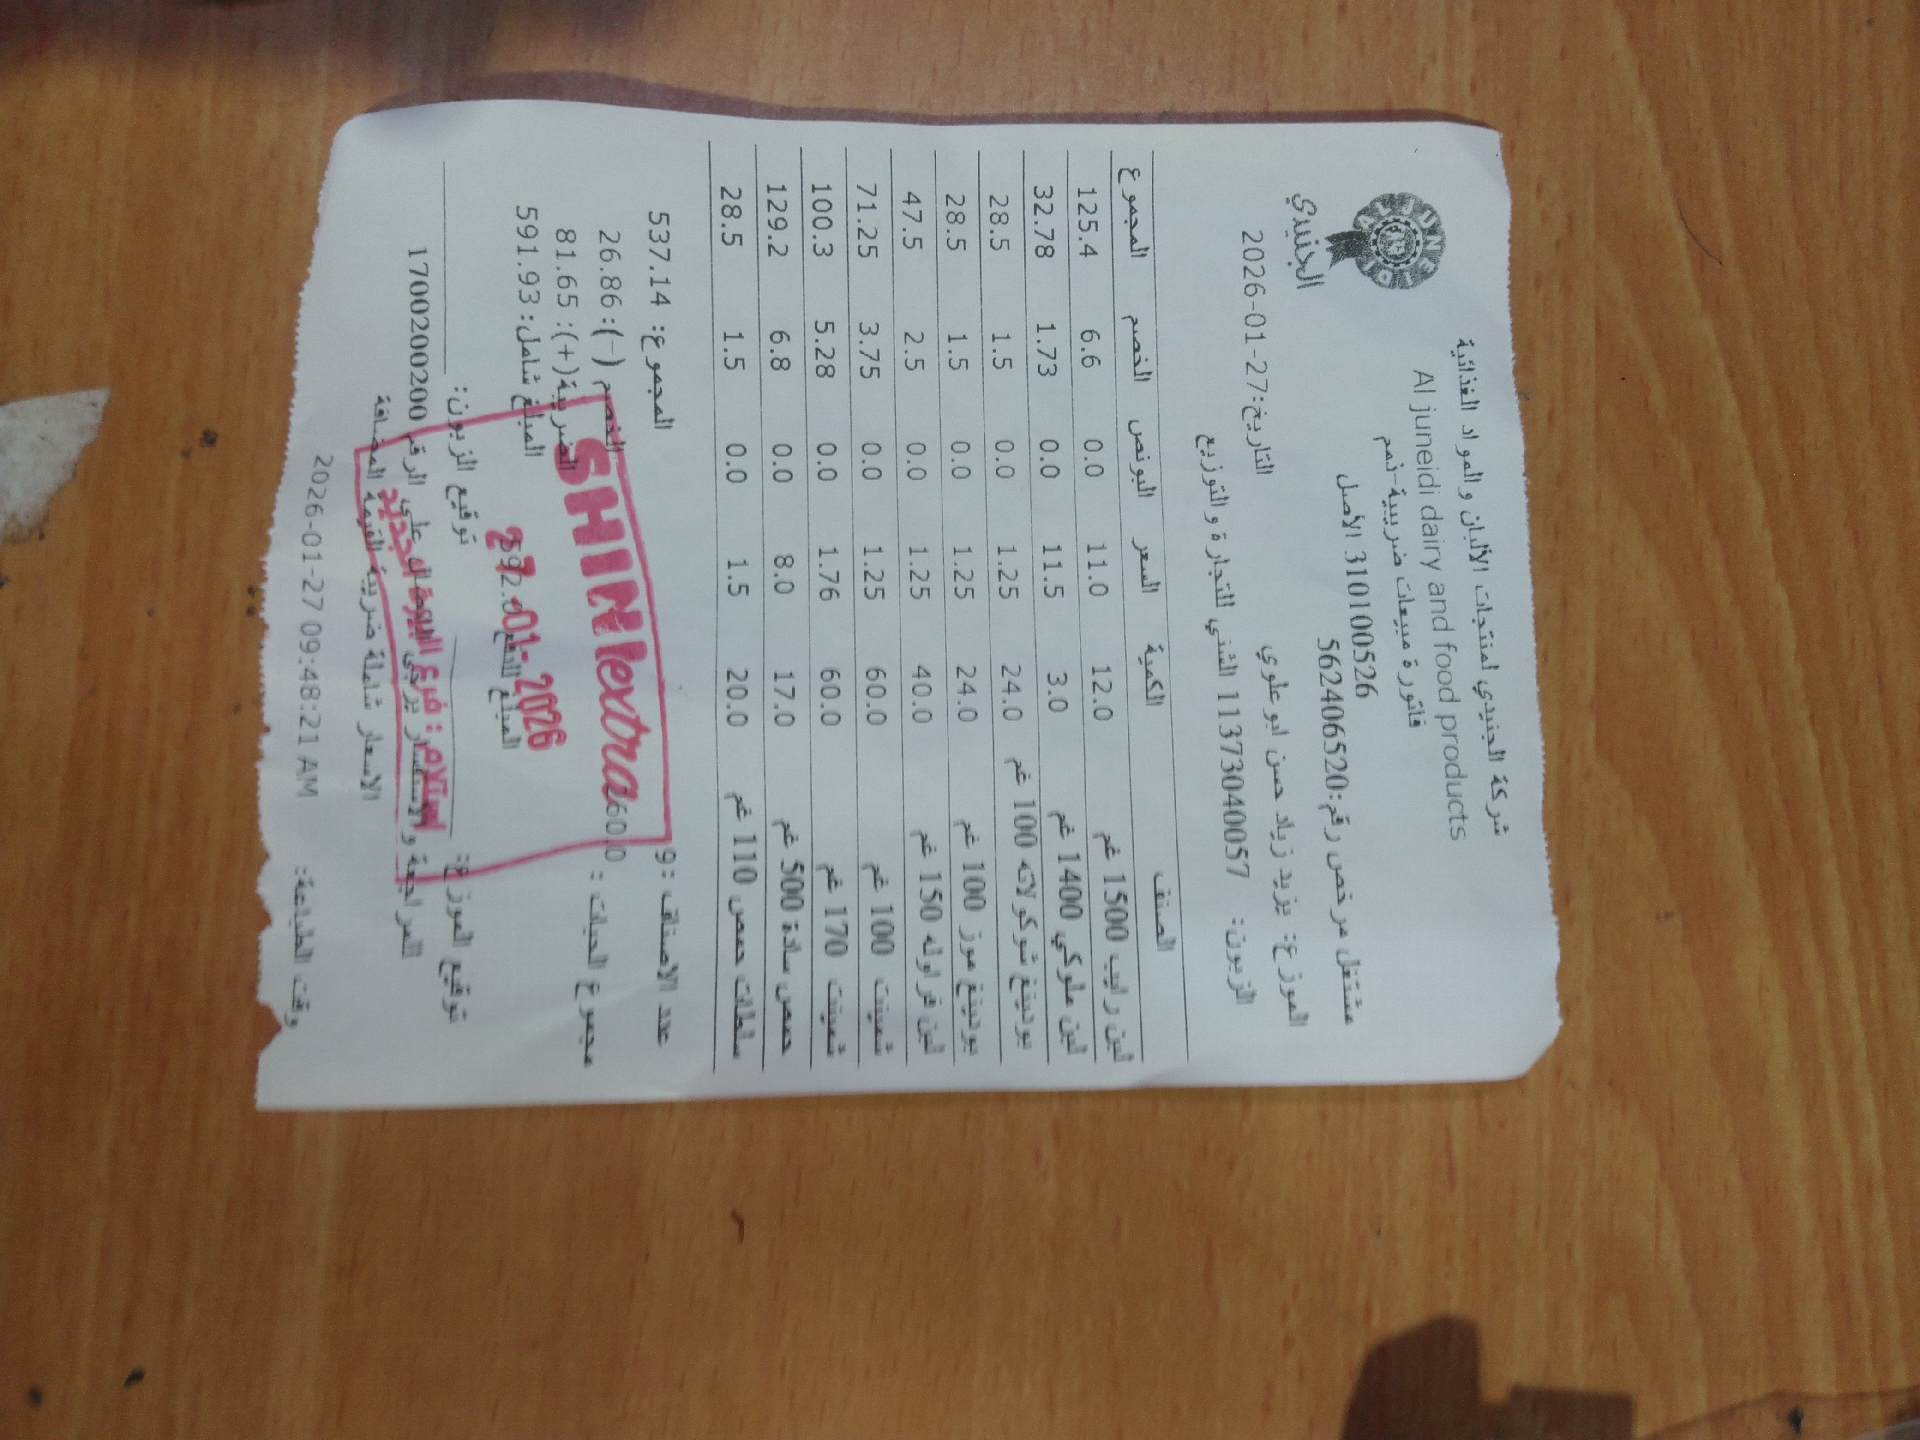 شركة الجنيدي لمنتجات الألبان و المواد الغذائية
Al juneidi dairy and food products
فاتورة مبيعات ضريبية-نهم
310100526 الأصل
مشتغل مرخص رقم:562406520
AL JUNEIDI
الجنيدي
الموزع: يزيد زياد حسن ابو علوي
التاريخ:2026-01-27
الزبون: 11373040057 الشني للتجارة و التوزيع
الصنف الكمية السعر البونص الخصم المجموع
لبن رايب 1500 غم 12.0 11.0 0.0 6.6 125.4
لبن ملوكي 1400 غم 3.0 11.5 0.0 1.73 32.78
بودينغ شوكولاته 100 غم 24.0 1.25 0.0 1.5 28.5
بودينغ موز 100 غم 24.0 1.25 0.0 1.5 28.5
لبن فراوله 150 غم 40.0 1.25 0.0 2.5 47.5
شمينت 100 غم 60.0 1.25 0.0 3.75 71.25
شمينت 170 غم 60.0 1.76 0.0 5.28 100.3
حمص سادة 500 غم 17.0 8.0 0.0 6.8 129.2
سلطات حمص 110 غم 20.0 1.5 0.0 1.5 28.5
عدد الاصناف :9 المجموع: 537.14
مجموع الحبات : الخصم (-): 26.86
SHINI extra
الضريبة(+): 81.65
المبلغ شامل: 591.93
27-01-2026
توقيع الموزع: توقيع الزبون:
استلام : فرع
الجديد
للمراجعة والاستفسار يرجى الاتصال على الرقم 1700200200
الاسعار شاملة ضريبة القيمة المضافة
وقت الطباعة: 2026-01-27 09:48:21 AM